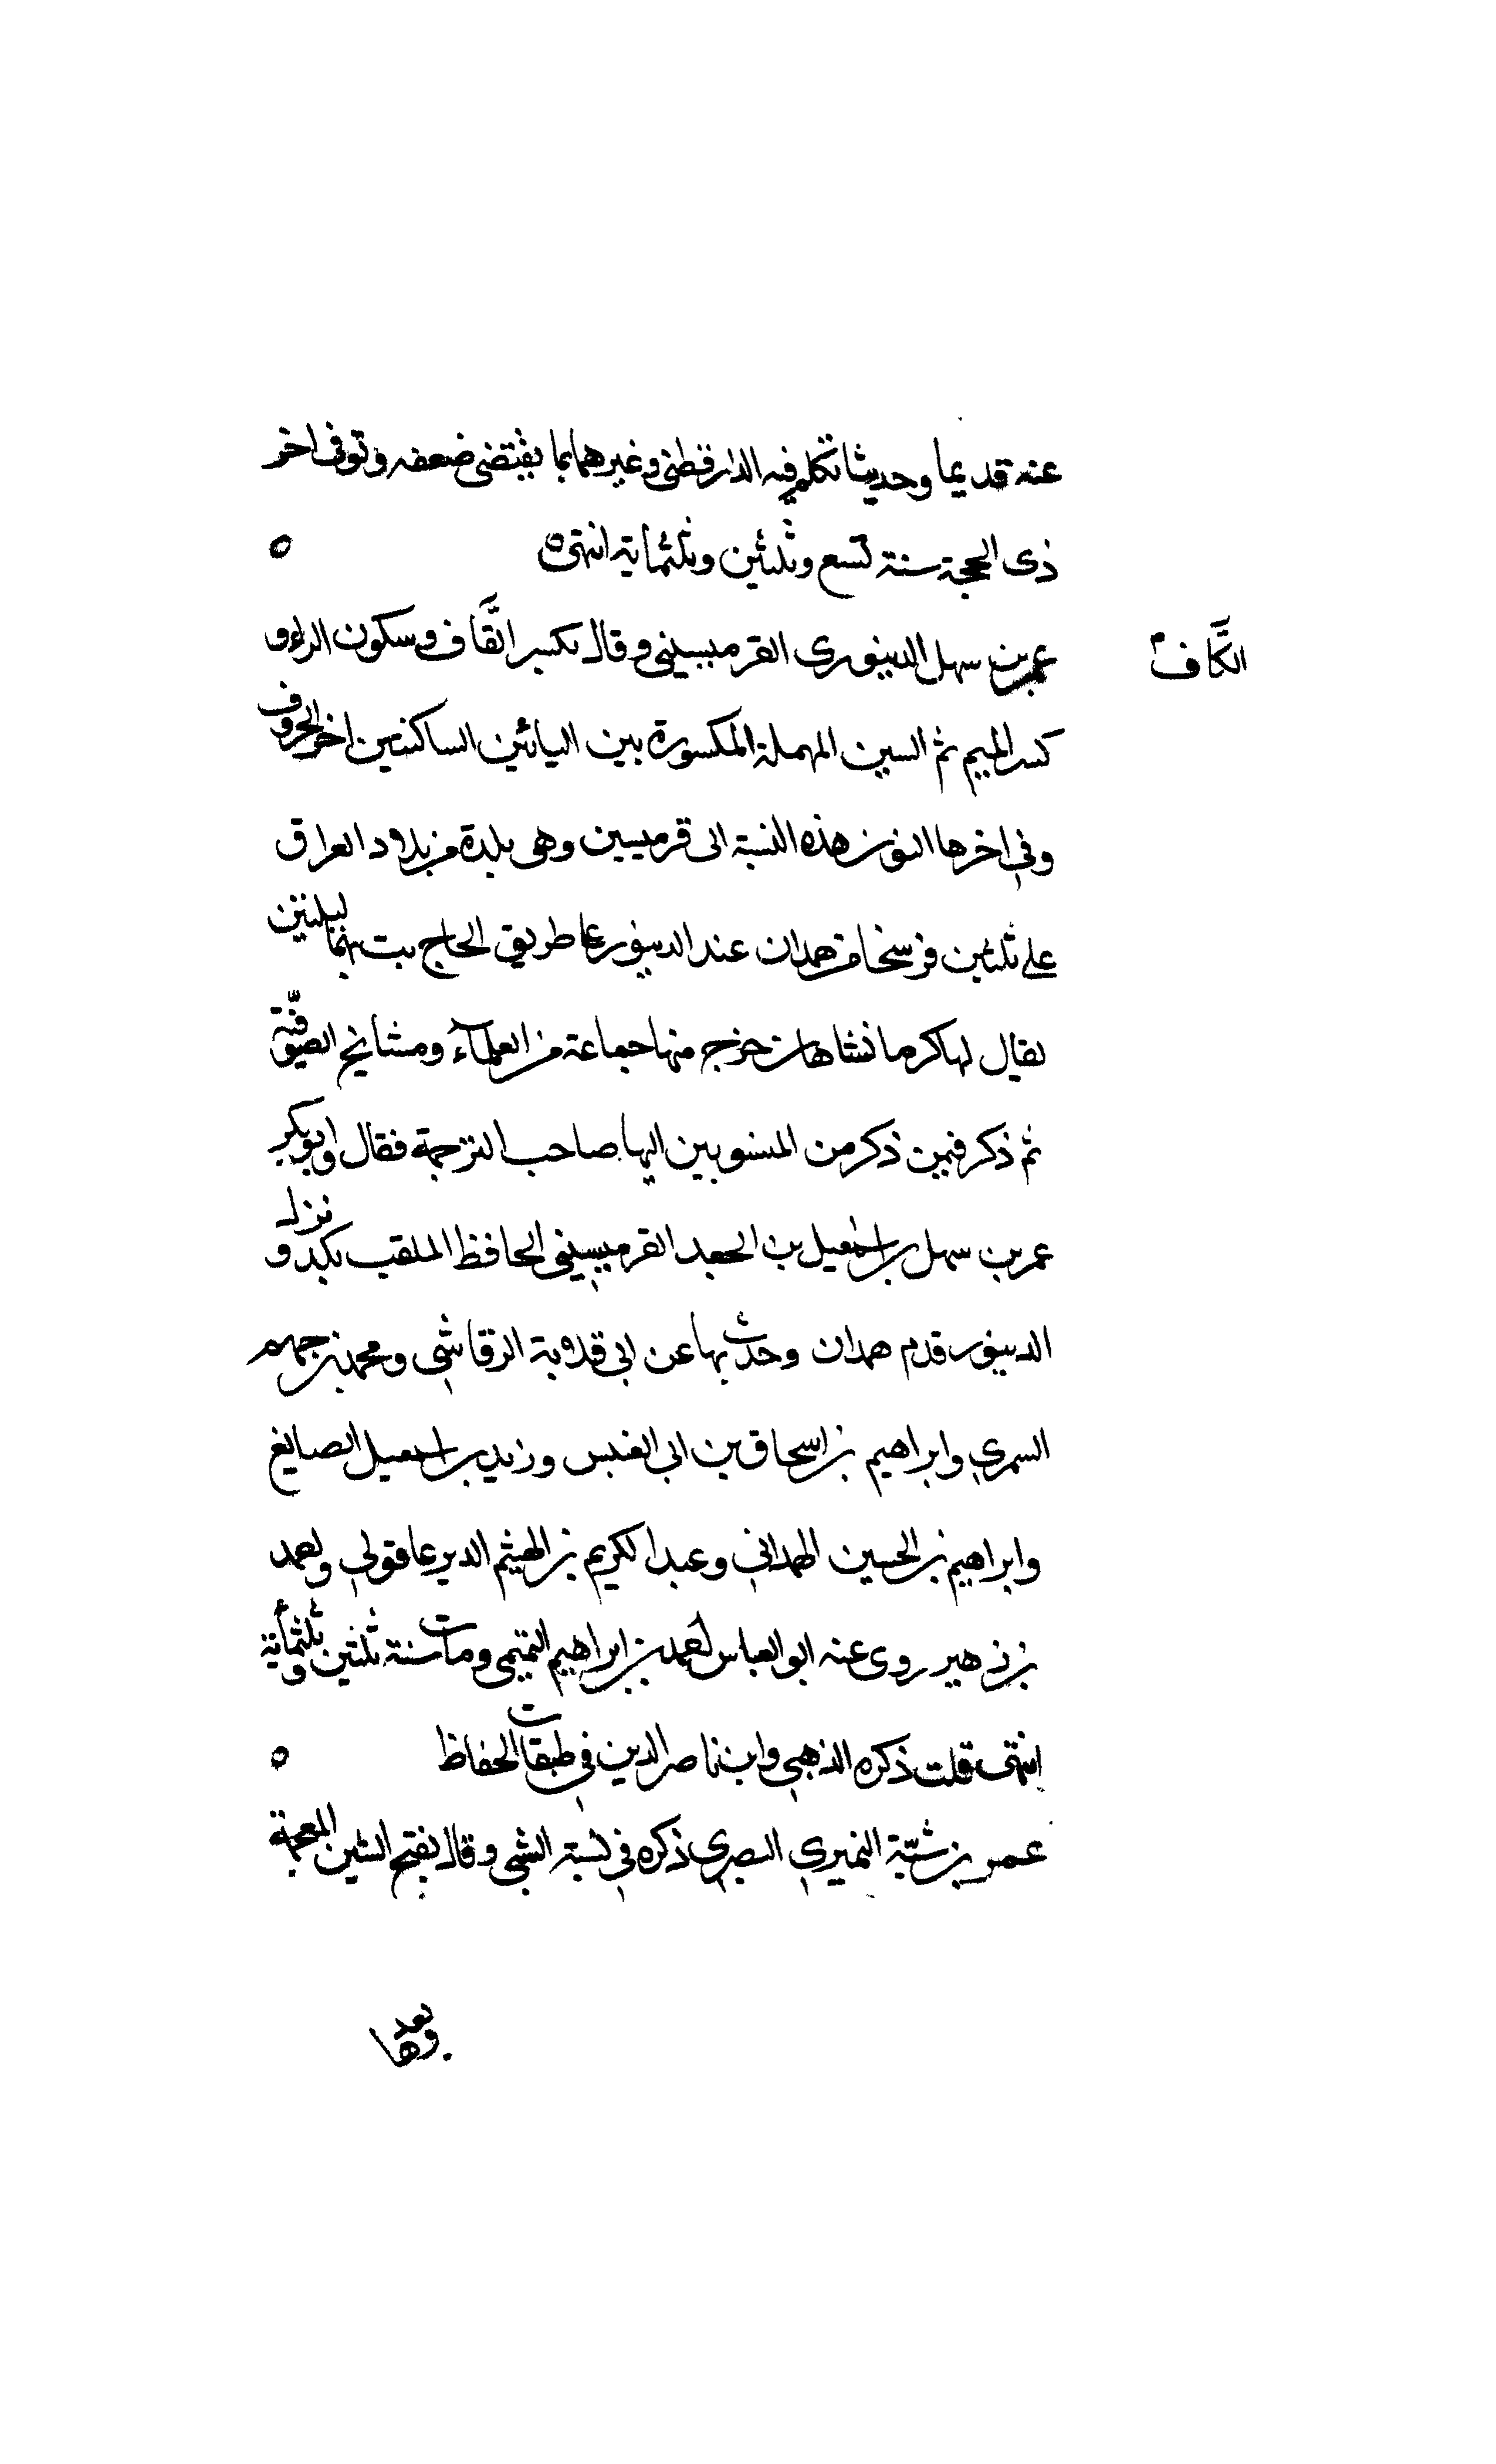 عنه قديما وحديثا تكلم فيه الدارقطني وغيرهما بما يقتضي ضعفه وتوفي اخر
ذى الحجة سنة تسع وثلثين وثلثماية انتهى ه
الكاف
عمر بن سهل الدينورى القرميسيني وقال بكسر القاف وسكون الراء و
كسر الميم ثم السين المهملة المكسورة بين اليائين الساكنتين اخر الحروف
وفي اخرها النون هذه النسبة الى قرميسين وهى بلدة من بلاد العراق
على ثلثين فرسخا من همدان عند الدينور على طريق الحاج بت بها ليلتين
يقال لها كرمانشاهان خرج منها جماعة من العلماء ومشايخ الصوفية
ثم ذكر فيمن ذكر من المنسوبين اليها صاحب الترجمة فقال وابو بكر
عمر بن سهل بن اسمعيل بن الجعد القرميسيني الحافظ الملقب بكدو نزل
الدينور قدم همدان وحدث بها عن ابى قلابة الرقاشي ومحمد بن جهم
السمري وابراهيم بن اسحاق بن ابى العنبس وزيد بن اسمعيل الصايغ
وابراهيم بن الحسين الهمداني وعبد الكريم بن الهيثم الديرعاقولي واحمد
بن زهير روى عنه ابو العباس احمد بن ابراهيم التميمي ومات سنة ثلثين وثلثماية
انتهى قلت ذكره الذهبي وابن ناصر الدين في طبقات الحفاظ ه
عمر بن شبّة النميري البصري ذكره في نسبة الشبي وقال بفتح الشين المعجمة
وبعدها